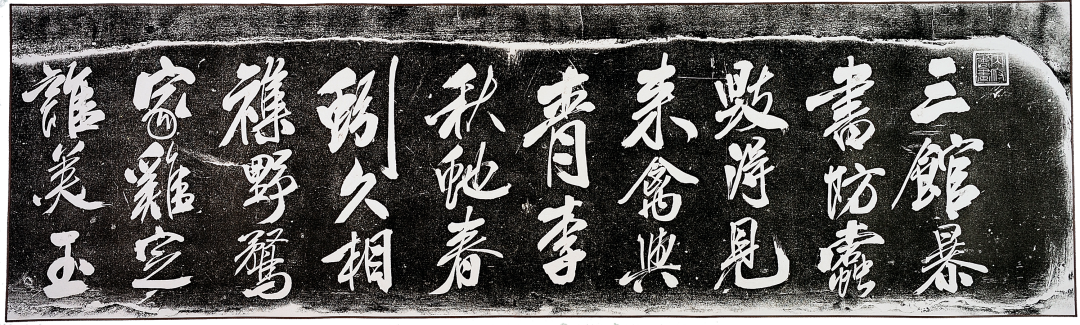 三館暴
書防蠹
毀得見
来禽與
青李
秋虵春
蚓久相
襍野鶩
家雞定
誰美玉